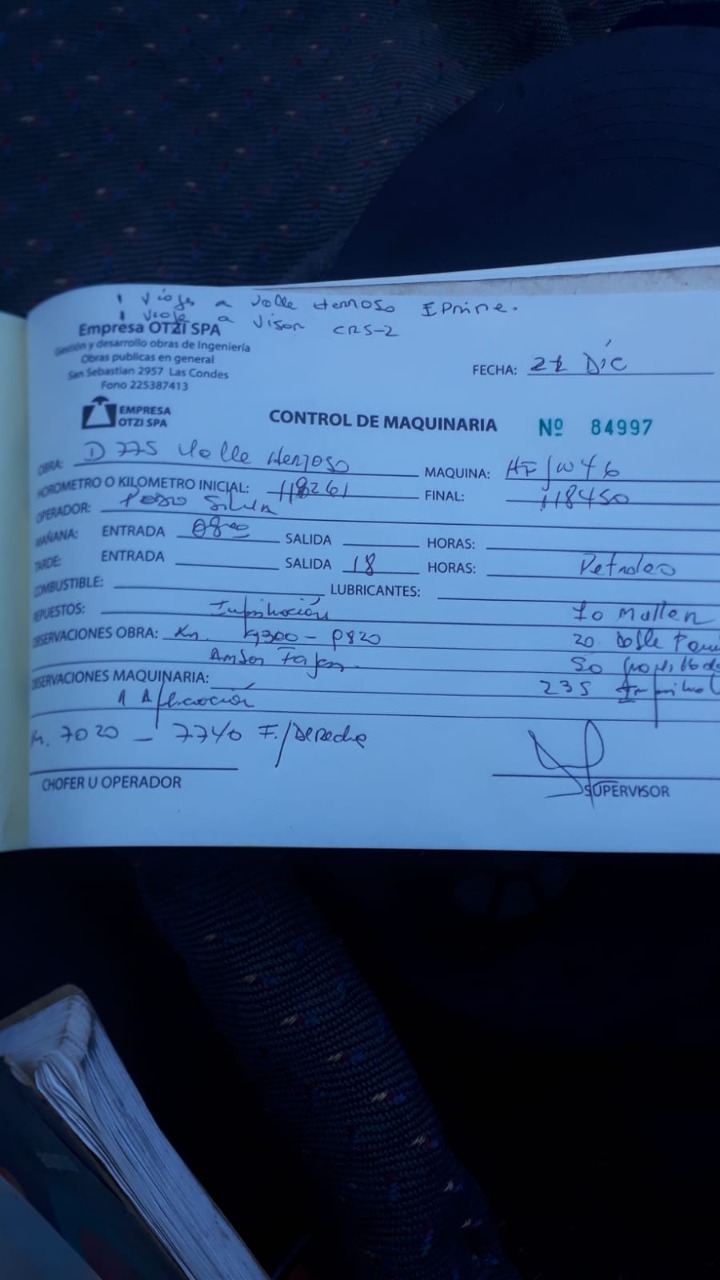 1 Viaje a Valle Hermoso Eprine.
1 Viaje a Visor CRS-2
Empresa OTZI SPA
Gestión y desarrollo obras de Ingeniería
Obras publicas en general
San Sebastian 2957 Las Condes
Fono 225387413
FECHA: 21 Dic
EMPRESA
OTZI SPA
CONTROL DE MAQUINARIA Nº 84997
OBRA: D 775 Valle Hermoso MAQUINA: HFJW46
HOROMETRO O KILOMETRO INICIAL: 118261 FINAL: 118450
OPERADOR: Pedro Silva
MAÑANA: ENTRADA 0800 SALIDA HORAS:
TARDE: ENTRADA SALIDA 18 HORAS: Petroleo
COMBUSTIBLE: LUBRICANTES:
REPUESTOS: Imprimación 70 Mallen
OBSERVACIONES OBRA: Km. 9300 - 9820 20 Dolle
Ambas Fajas. 50
OBSERVACIONES MAQUINARIA: 235
1 Aplicación
K. 7020 - 7740 F./Derecha
CHOFER U OPERADOR
SUPERVISOR